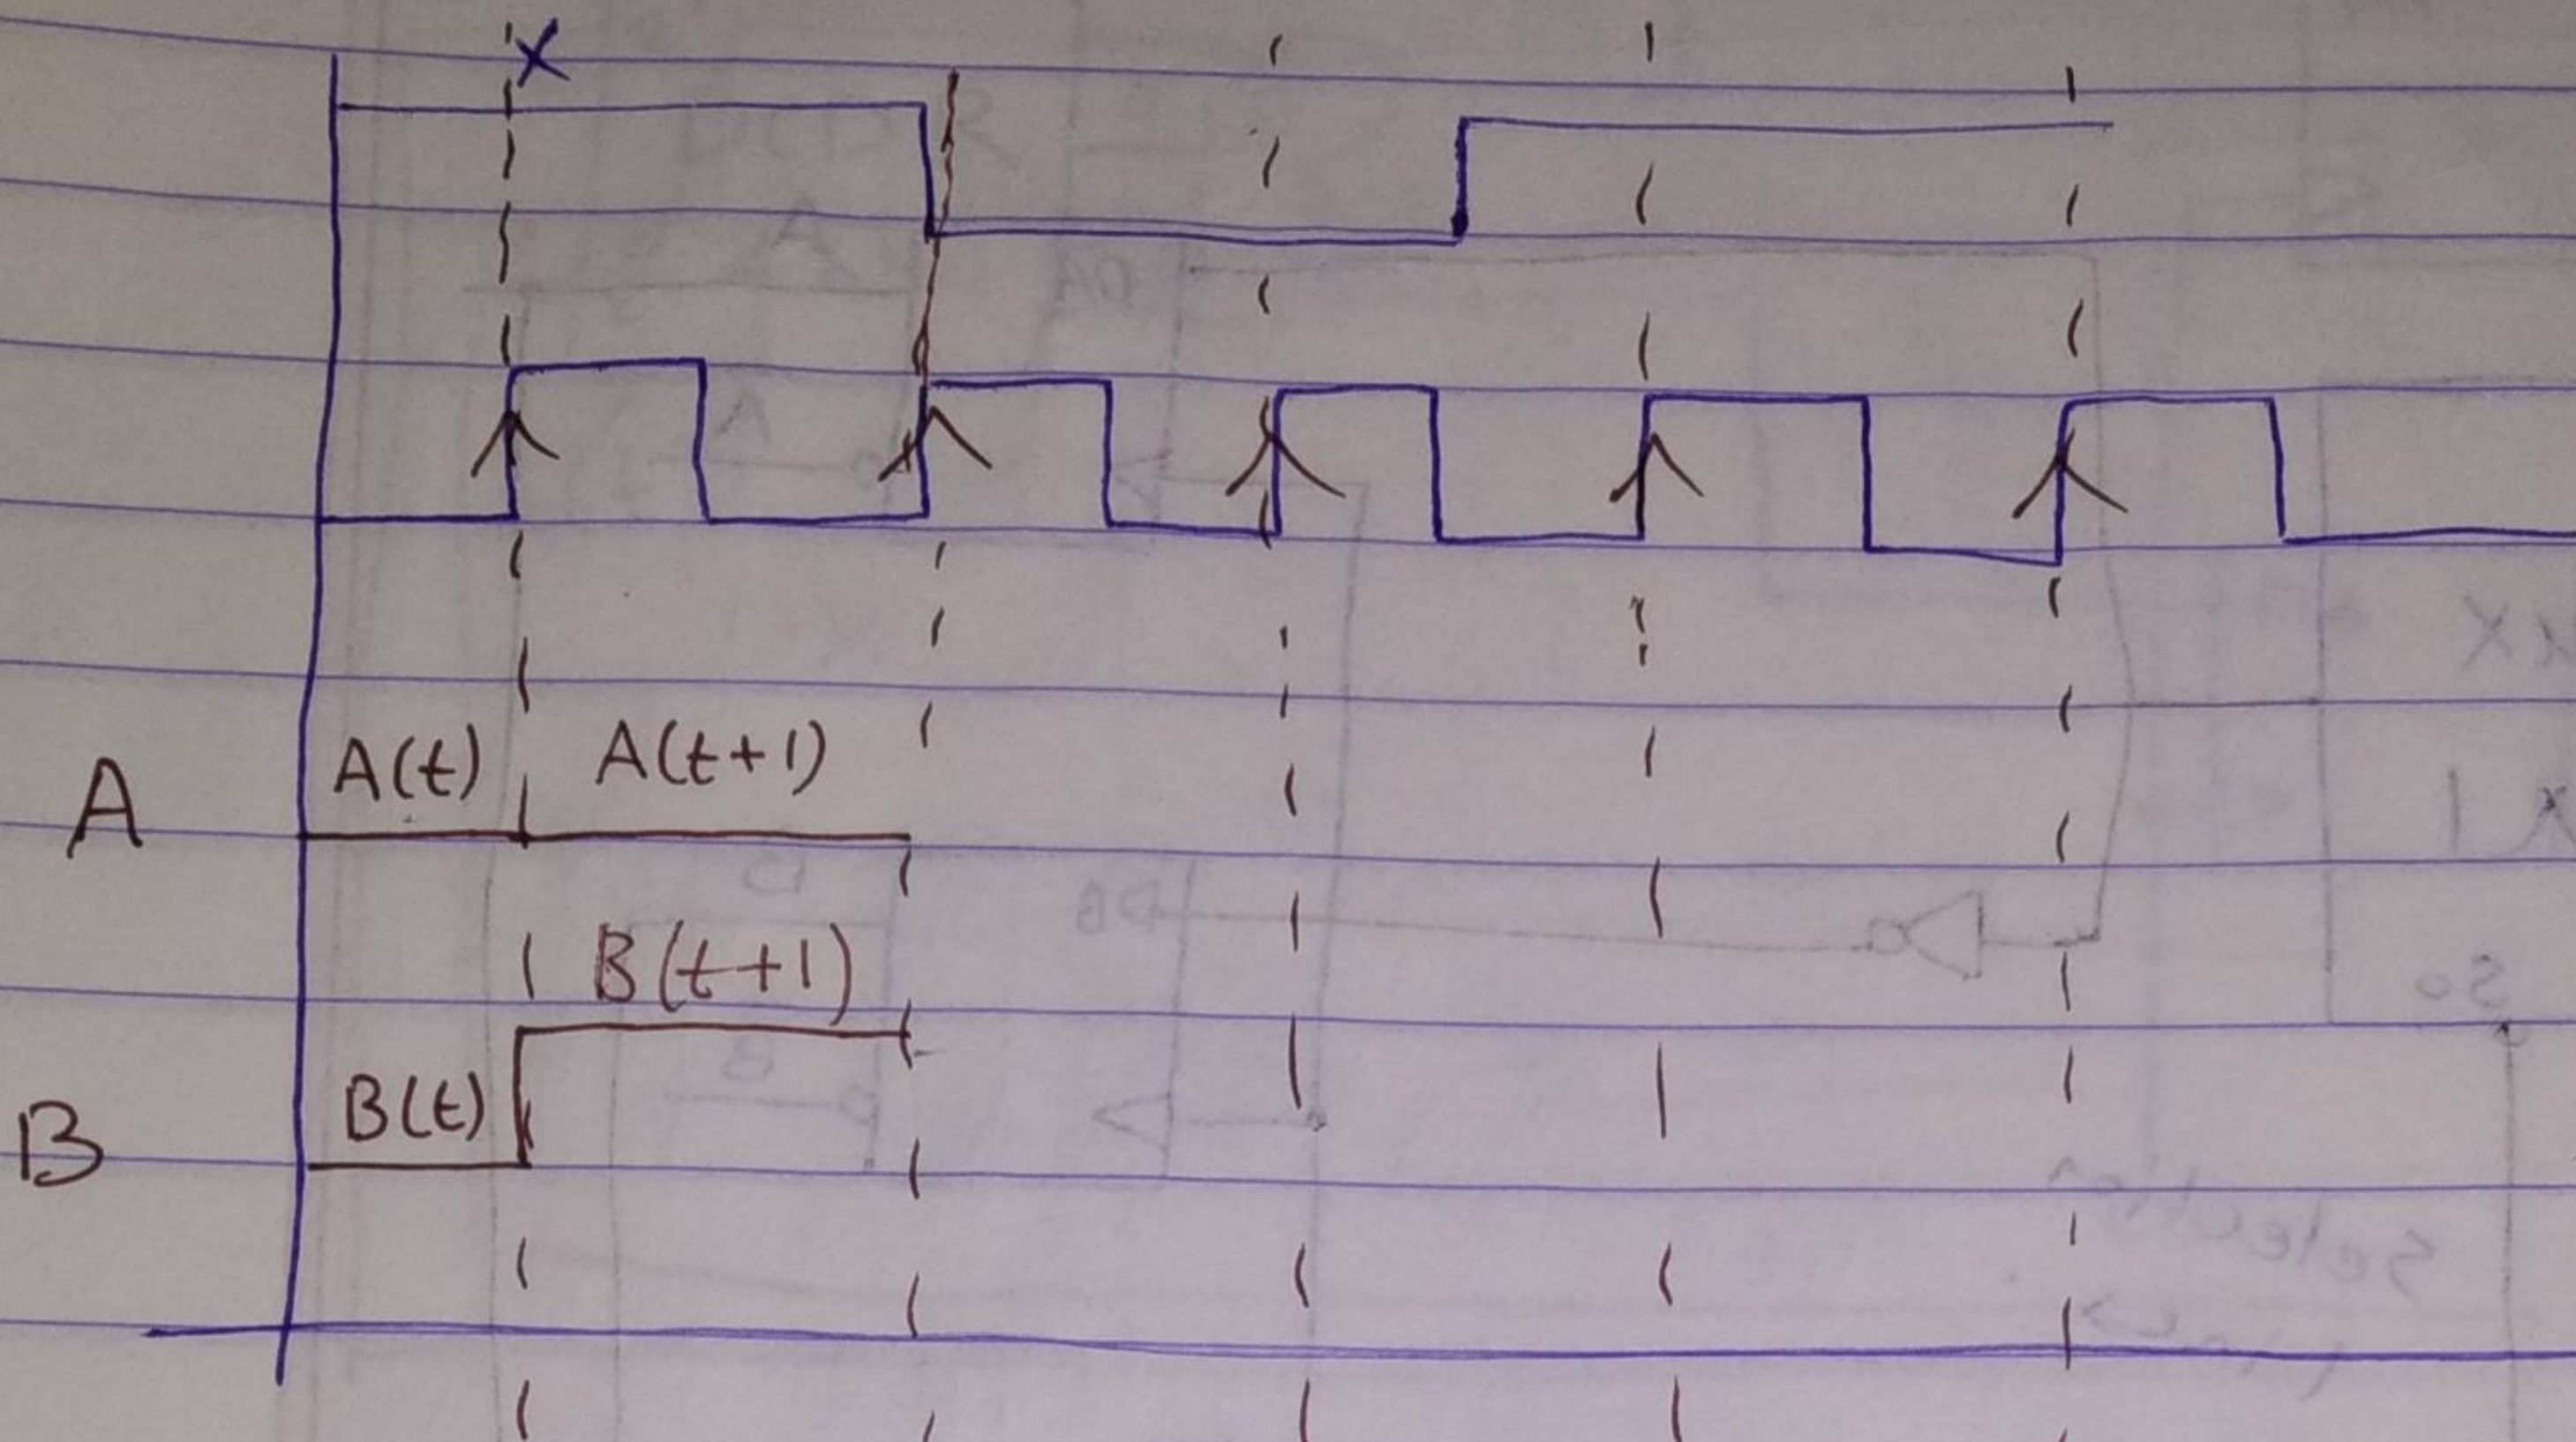 X
A
A(t)
A(t+1)
B(t+1)
B
B(t)